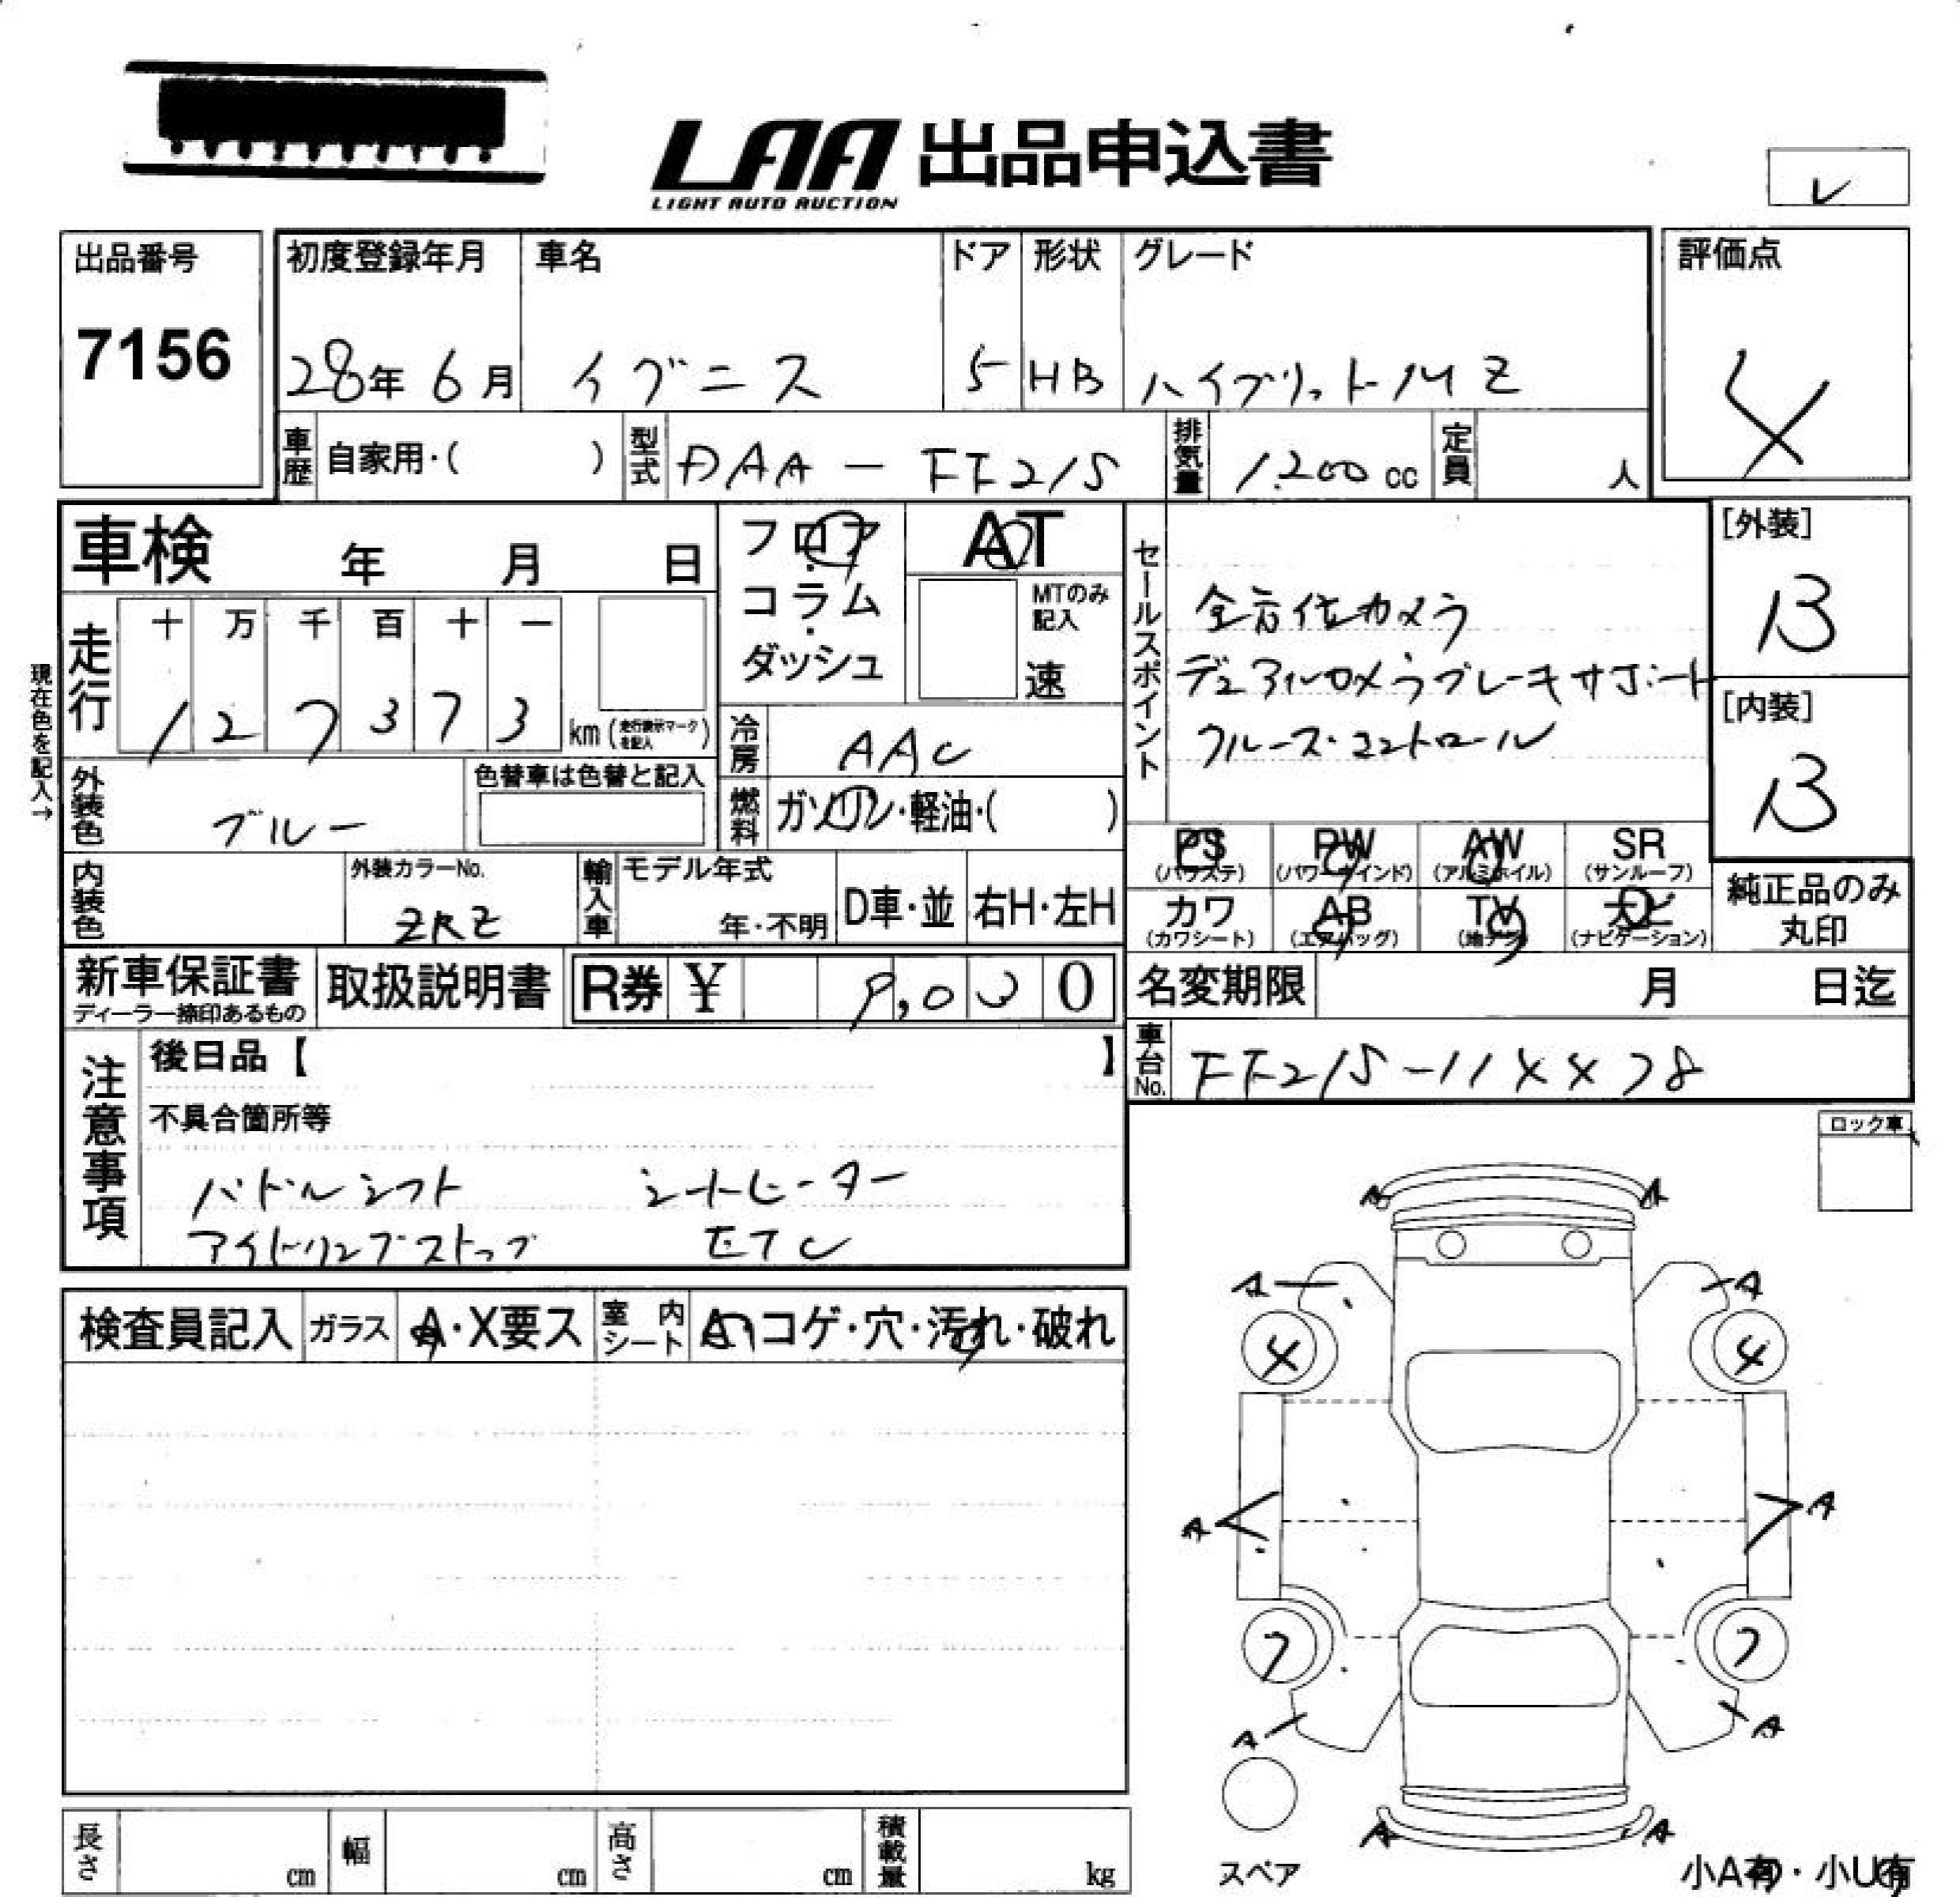 LAA 出品申込書
LIGHT AUTO AUCTION
レ
出品番号
7156
初度登録年月 車名 ドア 形状 グレード
28年 6月 イグニス 5 HB ハイブリットMZ
評価点
4
車歴 自家用・( ) 型式 DAA-FF21S 排気量 1.200 cc 定員 人
車検 年 月 日
フロア・コラム・ダッシュ
AT
MTのみ記入
速
セールスポイント
全方位カメラ
デュアルカメラブレーキサポート
クルーズ・コントロール
[外装]
B
[内装]
B
現在色を記入→
走行 十 万 千 百 十 一
1 2 7 3 7 3 km (走行表示マークを記入)
冷房 AAC
外装色 ブルー 色替車は色替と記入
燃料 ガソリン・軽油・( )
PS (パワステ) PW (パワーウインド) AW (アルミホイル) SR (サンルーフ)
カワ (カワシート) AB (エアバッグ) TV (地デジ) ナビ (ナビゲーション)
純正品のみ丸印
内装色 外装カラーNo. ZRZ 輸入車 モデル年式 年・不明 D車・並 右H・左H
新車保証書 ディーラー捺印あるもの 取扱説明書 R券 ¥ 9,030
名変期限 月 日迄
車台No. FF21S-11XX78
注意事項
後日品【 】
不具合箇所等
パドルシフト シートヒーター
アイドリングストップ ETC
ロック車
検査員記入 ガラス A・X要ス 室内シート A・コゲ・穴・汚れ・破れ
A A
A A
4 4
A A
7 7
A A
A A
スペア
小A有・小U有
長さ cm 幅 cm 高さ cm 積載量 kg